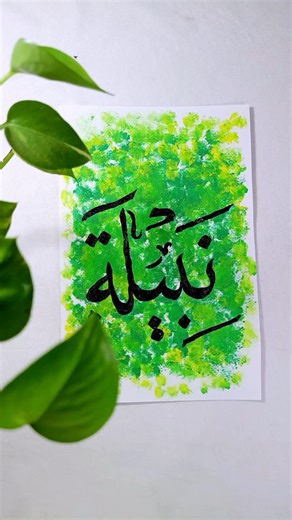 نَبِيْلَة